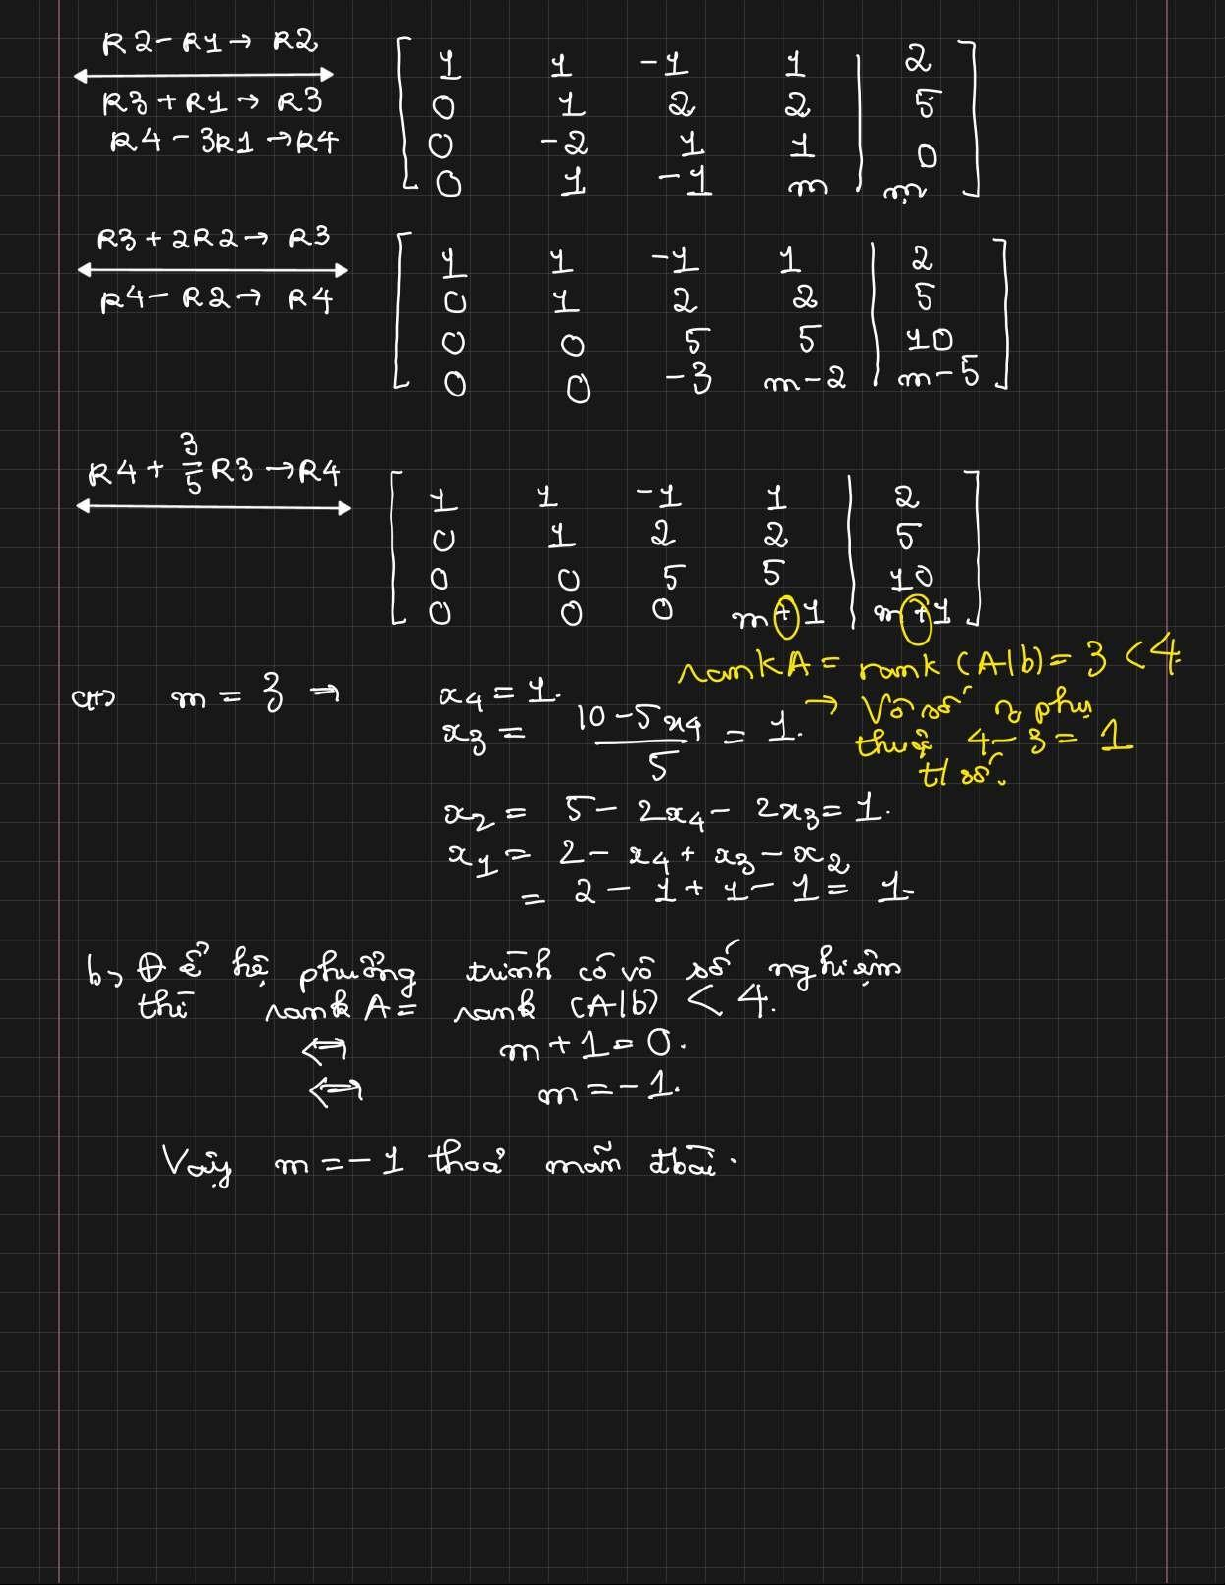 R2 - R1 → R2
R3 + R1 → R3
R4 - 3R1 → R4
1 1 -1 1 | 2
0 1 2 2 | 5
0 -2 1 1 | 0
0 1 -1 m | m
R3 + 2R2 → R3
R4 - R2 → R4
1 1 -1 1 | 2
0 1 2 2 | 5
0 0 5 5 | 10
0 0 -3 m-2 | m-5
R4 + 3/5 R3 → R4
1 1 -1 1 | 2
0 1 2 2 | 5
0 0 5 5 | 10
0 0 0 m+1 | m+1
rank A = rank (A|b) = 3 < 4.
→ Vô số no phụ
thuộc 4-3 = 1
tsố.
a) m = 3 → x4 = 1.
x3 = (10 - 5x4)/5 = 1.
x2 = 5 - 2x4 - 2x3 = 1.
x1 = 2 - x4 + x3 - x2
= 2 - 1 + 1 - 1 = 1.
b, Để hệ phương trình có vô số nghiệm
thì rank A = rank (A|b) < 4.
⟺ m + 1 = 0.
⟺ m = -1.
Vậy m = -1 thoả mãn đbài.